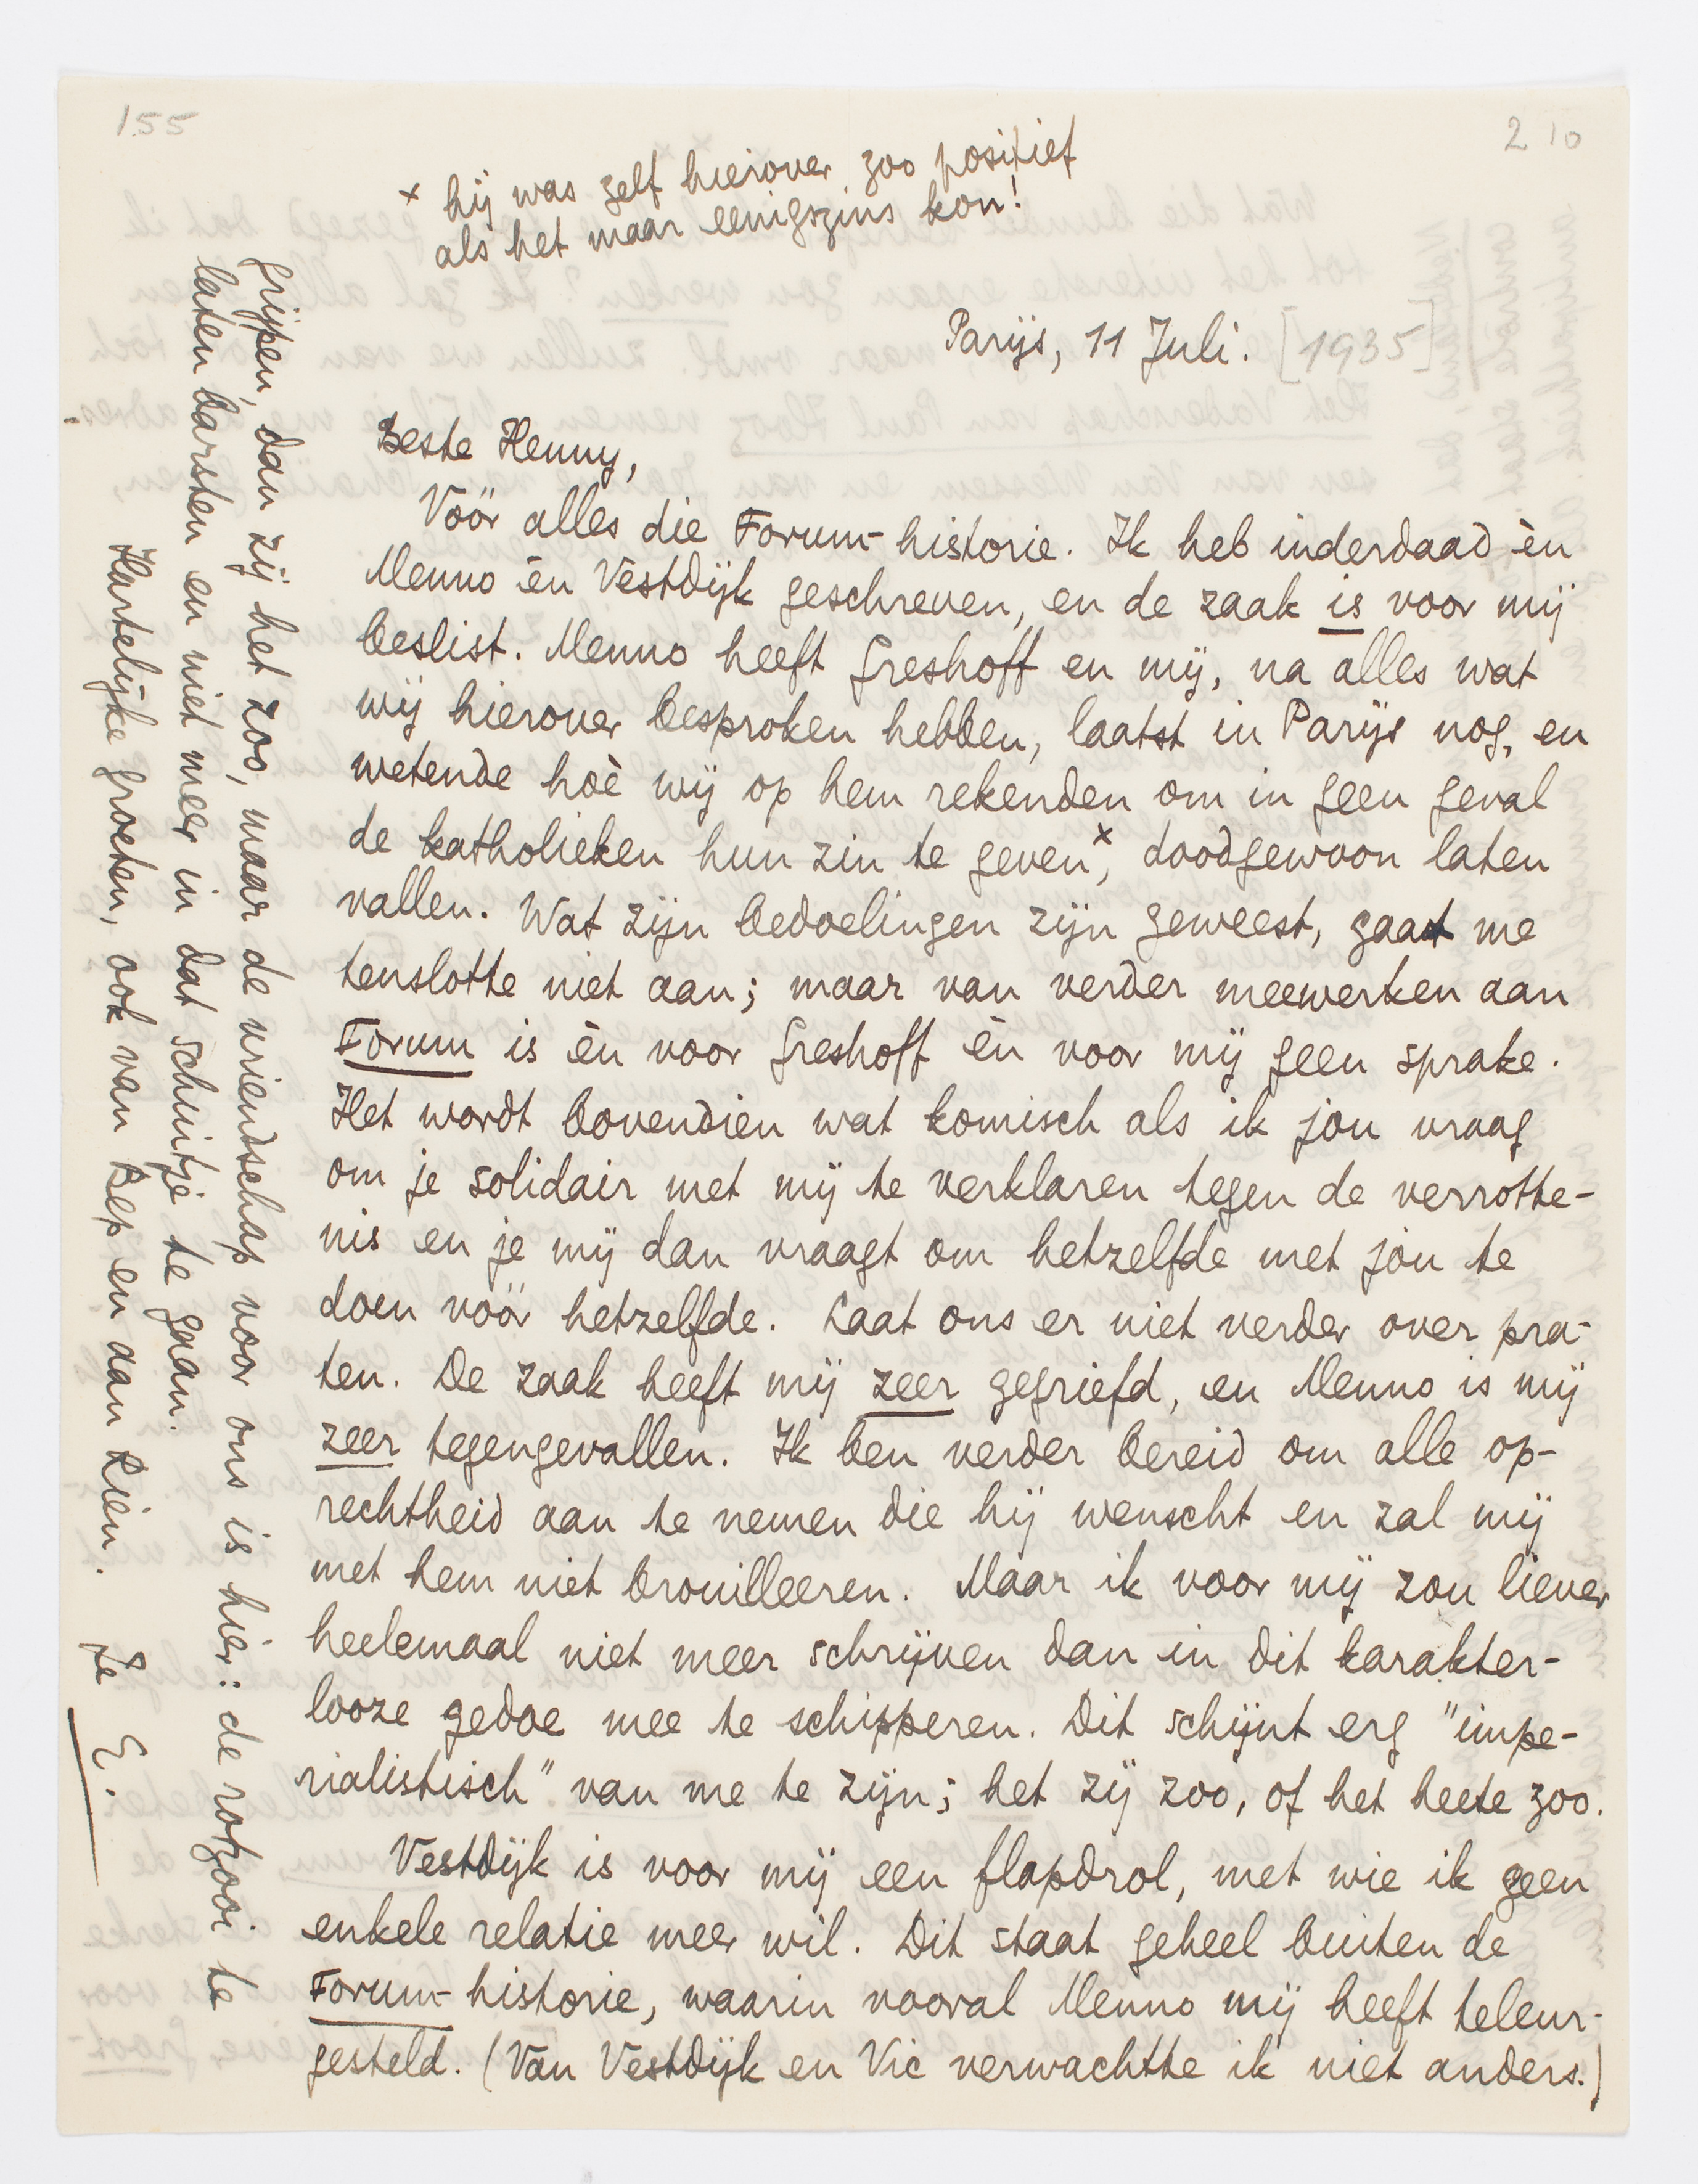 155
210
× hij was zelf hierover zoo positief
als het maar eenigszins kon!
Parijs, 11 Juli. [1935]
Beste Henny,
Vóór alles die Forum-historie. Ik heb inderdaad èn
Menno èn Vestdijk geschreven, en de zaak is voor mij
beslist. Menno heeft Greshoff en mij, na alles wat
wij hierover besproken hebben, laatst in Parijs nog, en
wetende hoè wij op hem rekenden om in geen geval
de katholieken hun zin te geven×, doodgewoon laten
vallen. Wat zijn bedoelingen zijn geweest, gaat me
tenslotte niet aan; maar van verder meewerken aan
Forum is èn voor Greshoff èn voor mij geen sprake.
Het wordt bovendien wat komisch als ik jou vraag
om je solidair met mij te verklaren tegen de verrotte-
nis en je mij dan vraagt om hetzelfde met jóu te
doen vóór hetzelfde. Laat ons er niet verder over pra-
ten. De zaak heeft mij zeer gegriefd, en Menno is mij
zeer tegengevallen. Ik ben verder bereid om alle op-
rechtheid aan te nemen die hij wenscht en zal mij
met hem niet brouilleeren. Maar ik voor mij zou liever
heelemaal niet meer schrijven dan in dit karakter-
looze gedoe mee te schipperen. Dit schijnt erg "impe-
rialistisch" van me te zijn; het zij zoo, of het heete zoo.
Vestdijk is voor mij een flapdrol, met wie ik geen
enkele relatie meer wil. Dit staat geheel buiten de
Forum-historie, waarin vooral Menno mij heeft teleur-
gesteld. (Van Vestdijk en Vic verwachtte ik niet anders.)
grijpen, dan zij het zoo, maar de vriendschap voor ons is hier: de rotzooi te
laten barsten en niet meer in dat schuitje te gaan.
Hartelijke groeten, ook van Bep en aan Lien. Je E.